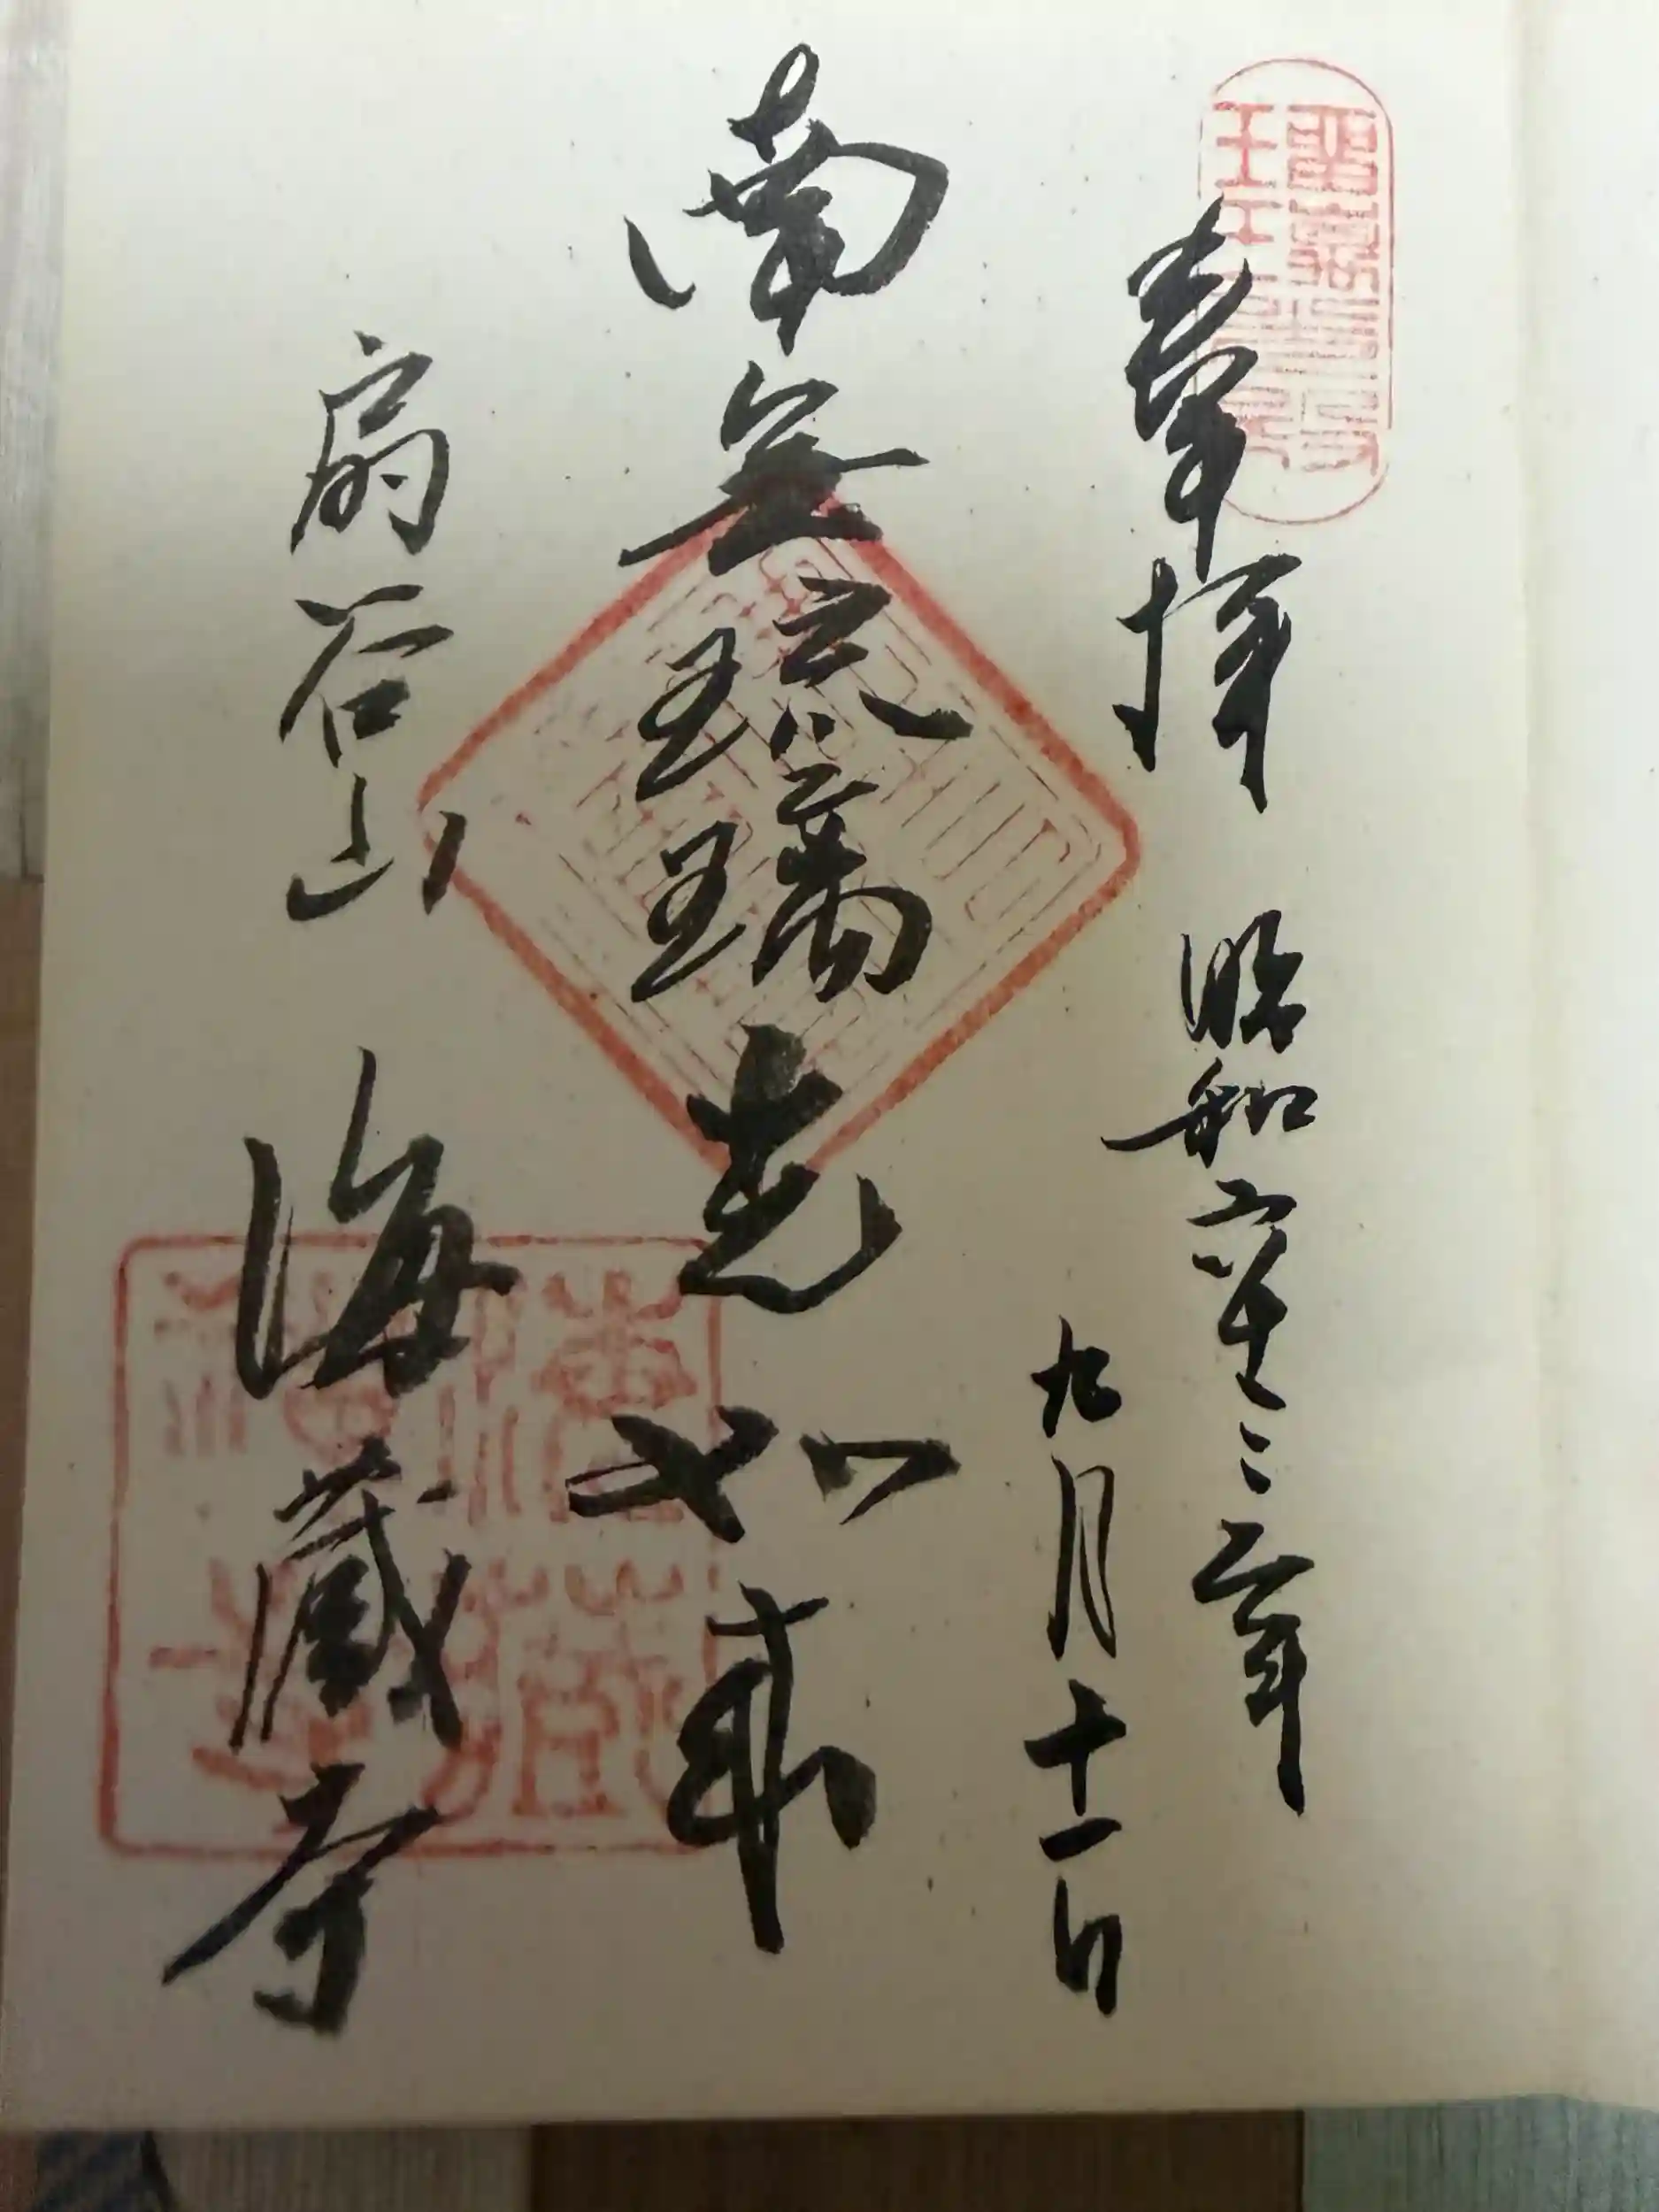 奉拝 昭和六十三年
九月十一日
南無琉璃光如来
扇谷山 海蔵寺